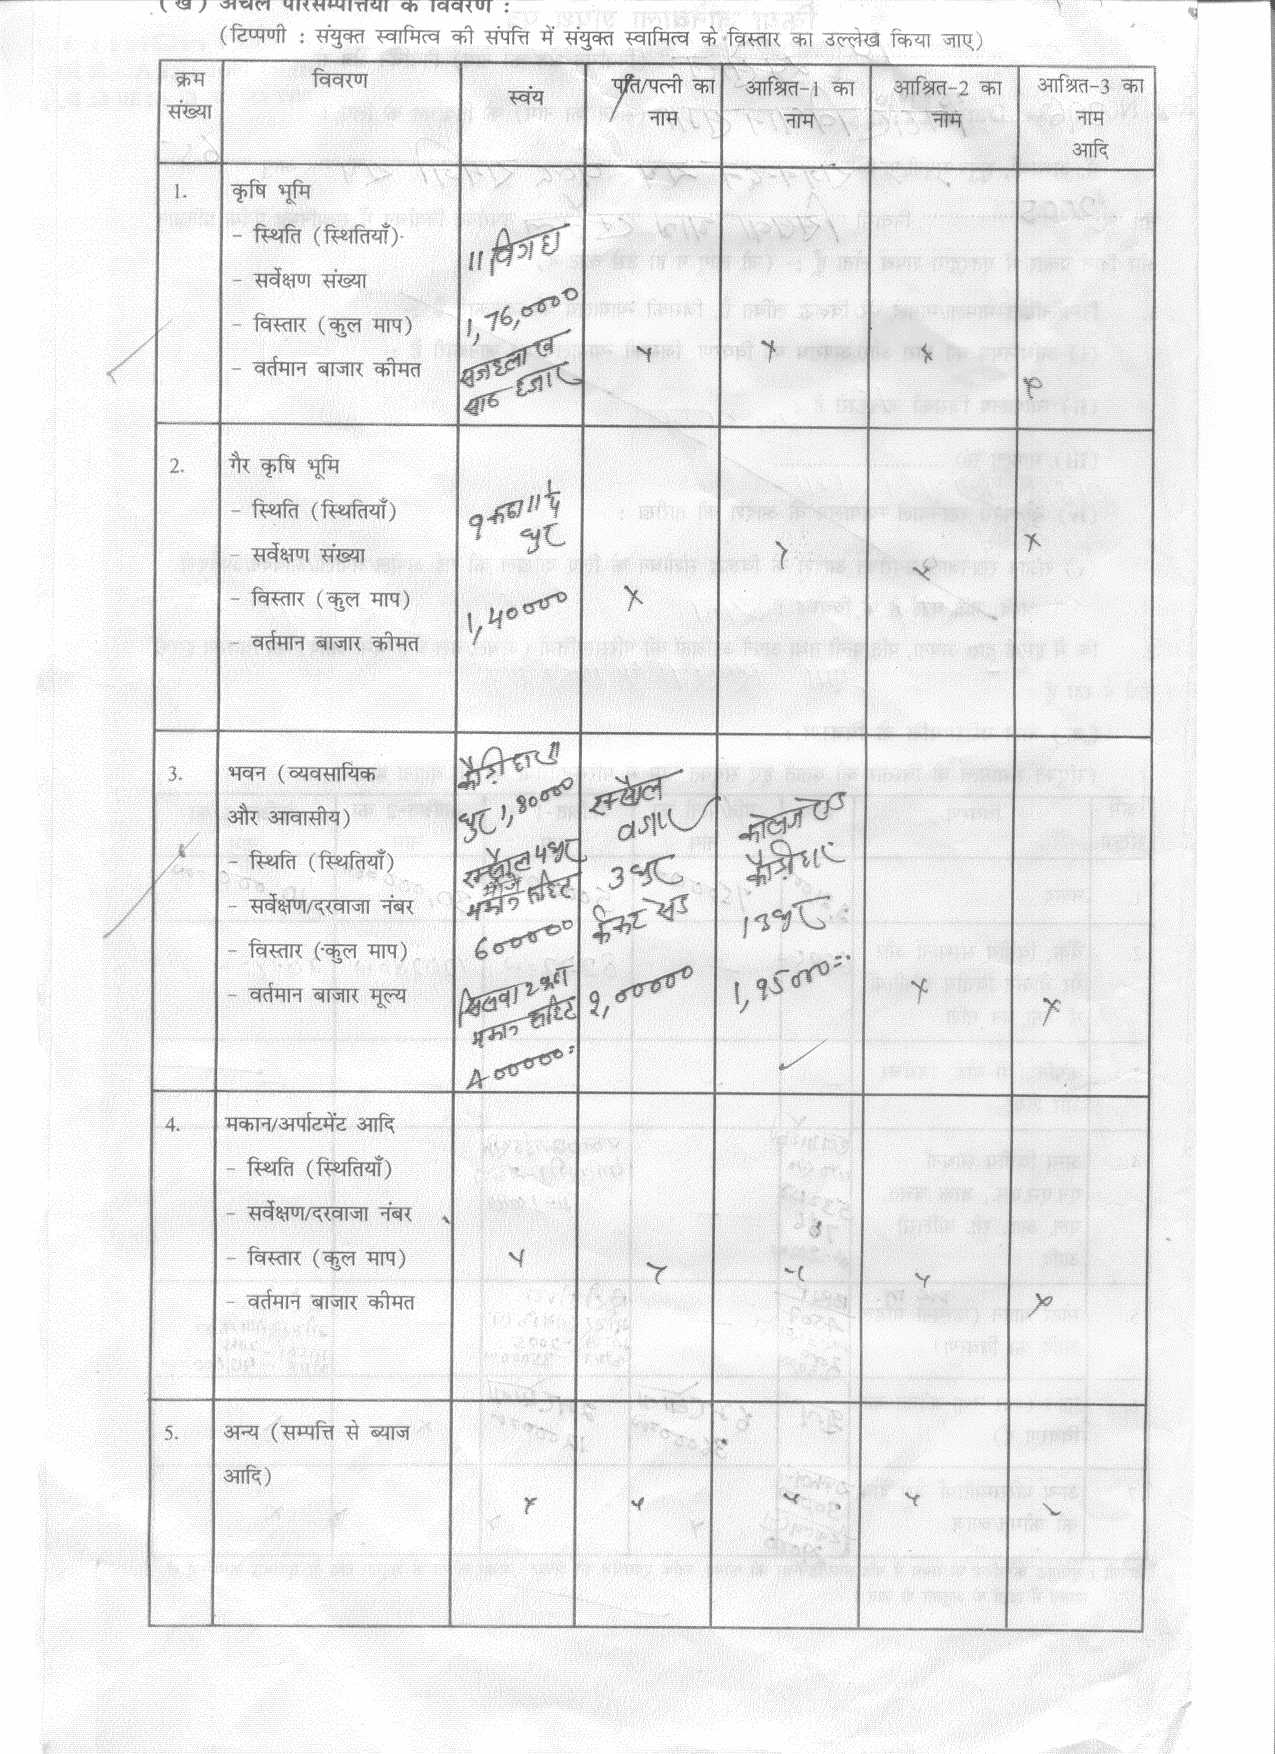 (ख) अचल परिसम्पत्तियों के विवरण :
(टिप्पणी : संयुक्त स्वामित्व की संपत्ति में संयुक्त स्वामित्व के विस्तार का उल्लेख किया जाए)
क्रम संख्या
विवरण
स्वंय
पति/पत्नी का नाम
आश्रित-1 का नाम
आश्रित-2 का नाम
आश्रित-3 का नाम आदि
1.
कृषि भूमि
- स्थिति (स्थितियाँ)
- सर्वेक्षण संख्या
- विस्तार (कुल माप)
- वर्तमान बाजार कीमत
11 विगहा
1,76,0000
x
x
x
x
2.
गैर कृषि भूमि
- स्थिति (स्थितियाँ)
- सर्वेक्षण संख्या
- विस्तार (कुल माप)
- वर्तमान बाजार कीमत
धुर
1,40000
x
x
x
x
3.
भवन (व्यवसायिक
और आवासीय)
- स्थिति (स्थितियाँ)
- सर्वेक्षण/दरवाजा नंबर
- विस्तार (कुल माप)
- वर्तमान बाजार मूल्य
कौड़ीहार 11
धुर 1,80000
रक्सौल
मकान सहित
600000
मकान सहित
400000
रक्सौल
3 धुर
कॉलेज रोड
कौड़ीहार
13 धुर
x
x
4.
मकान/अर्पाटमेंट आदि
- स्थिति (स्थितियाँ)
- सर्वेक्षण/दरवाजा नंबर
- विस्तार (कुल माप)
- वर्तमान बाजार कीमत
x
x
x
x
x
5.
अन्य (सम्पत्ति से ब्याज
आदि)
x
x
x
x